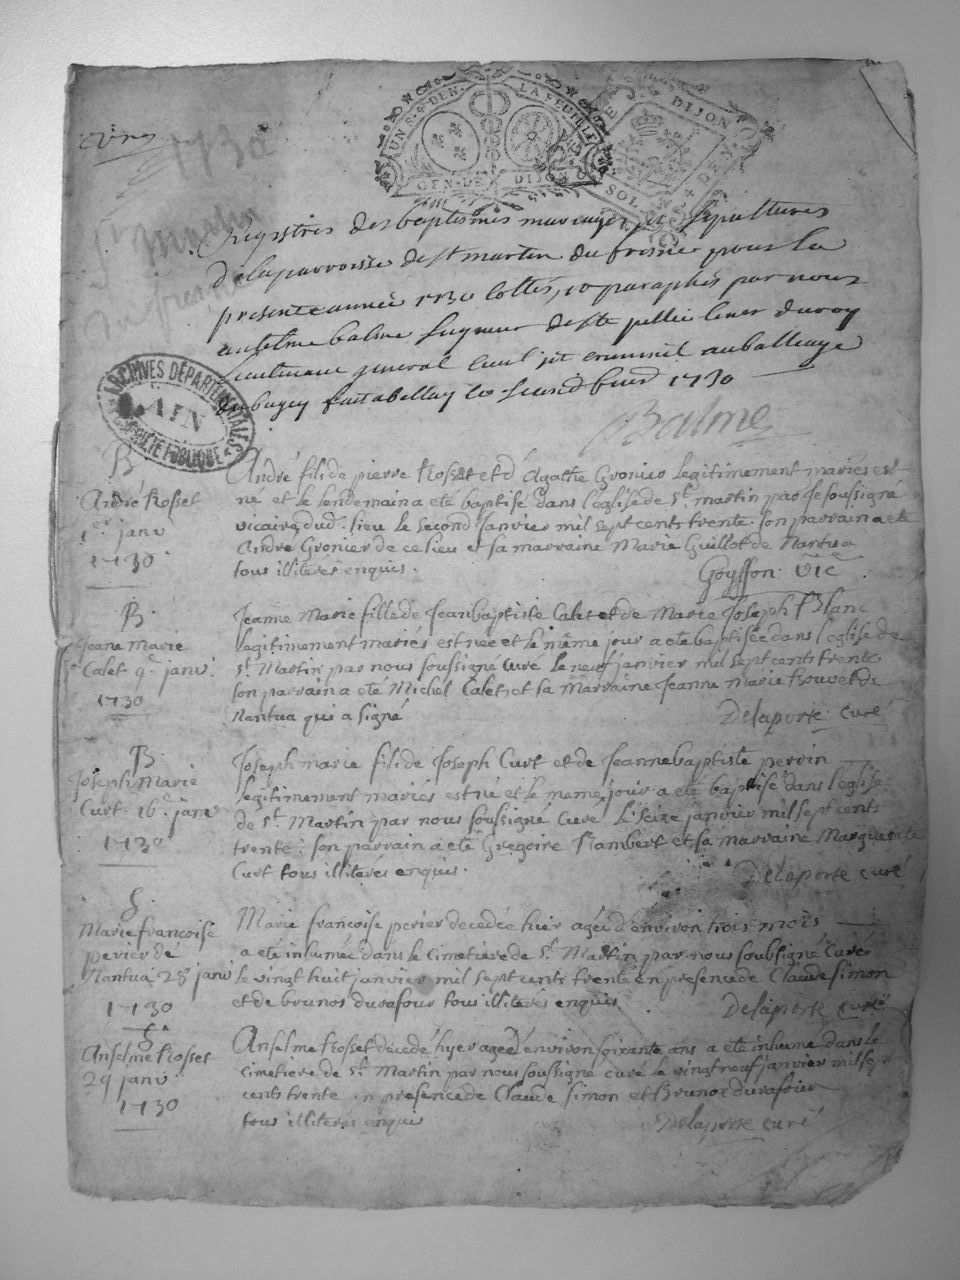 1730
St Martin
du fresne
UN S. 4 DEN. LA FEUILLE
GEN. DE DIJON
DIJON
SOL
Registres des baptismes mariages et sepultures
de la parroisse de st martin du fresne pour la
presente année 1730 cottés, et paraphés par nous
anselme balme seigneur de ste pellie coner du roy
lieutenant general civil et criminel au balliage
du bugey fait a bellay le 1730
Balme
ARCHIVES DÉPARTEMENTALES
AIN
PROPRIÉTÉ PUBLIQUE
B
André Rosset
1er janv
1730
André fils de pierre Rosset et d'Agathe Gronier legitimement mariés est
né et le lendemain a eté baptisé dans l'eglise de St. martin par je soussigné
vicaire dud. lieu le second janvier mil sept cents trente. son parrain a eté
André Gronier de ce lieu et sa marraine Marie Guillot de Nantua
tous illiterés enquis.
Goyffon vic
B.
Jeane Marie
Calet 9e janv.
1730
Jeanne Marie fille de Jean baptiste Calet et de Marie Joseph Blanc
legitimement mariés est née et le même jour a eté baptisée dans l'eglise de
St. Martin par nous soussigné Curé le neuf janvier mil sept cents trente
son parrain a eté Michel Calet, et sa Marraine Jeanne Marie de
Nantua qui a signé
Delaporte curé
B.
Joseph Marie
Curt. 16e janv
1730
Joseph marie fils de Joseph Curt et de Jeanne baptiste perrin
legitimement mariés est né et le meme jour a eté baptisé dans l'eglise
de St. Martin par nous soussigné Curé. le seize janvier mil sept cents
trente: son parrain a eté Gregoire Rambert et sa marraine Marguerite
Curt tous illiterés enquis.
Delaporte curé
S.
Marie francoise
perier de
Nantua 28 janv
1730
Marie francoise perier decedée hier agée d'environ trois mois
a eté inhumée dans le Cimetiere de St. Martin par nous soubsigné Curé
le vingt huit janvier mil sept cents trente en presence de Claude Simon
et de brunos durafour tous illiteres enquis
Delaporte curé
S.
Anselme Rosset
29 janv
1730
Anselme Rosset decedé hyer agé d'environ soixante ans a eté inhumé dans le
Cimetiere de St. Martin par nous soussigné curé le vingt neuf janvier mil sept
cents trente en presence de Claude Simon et Brunos durafour
tous illiterés enquis
Delaporte curé